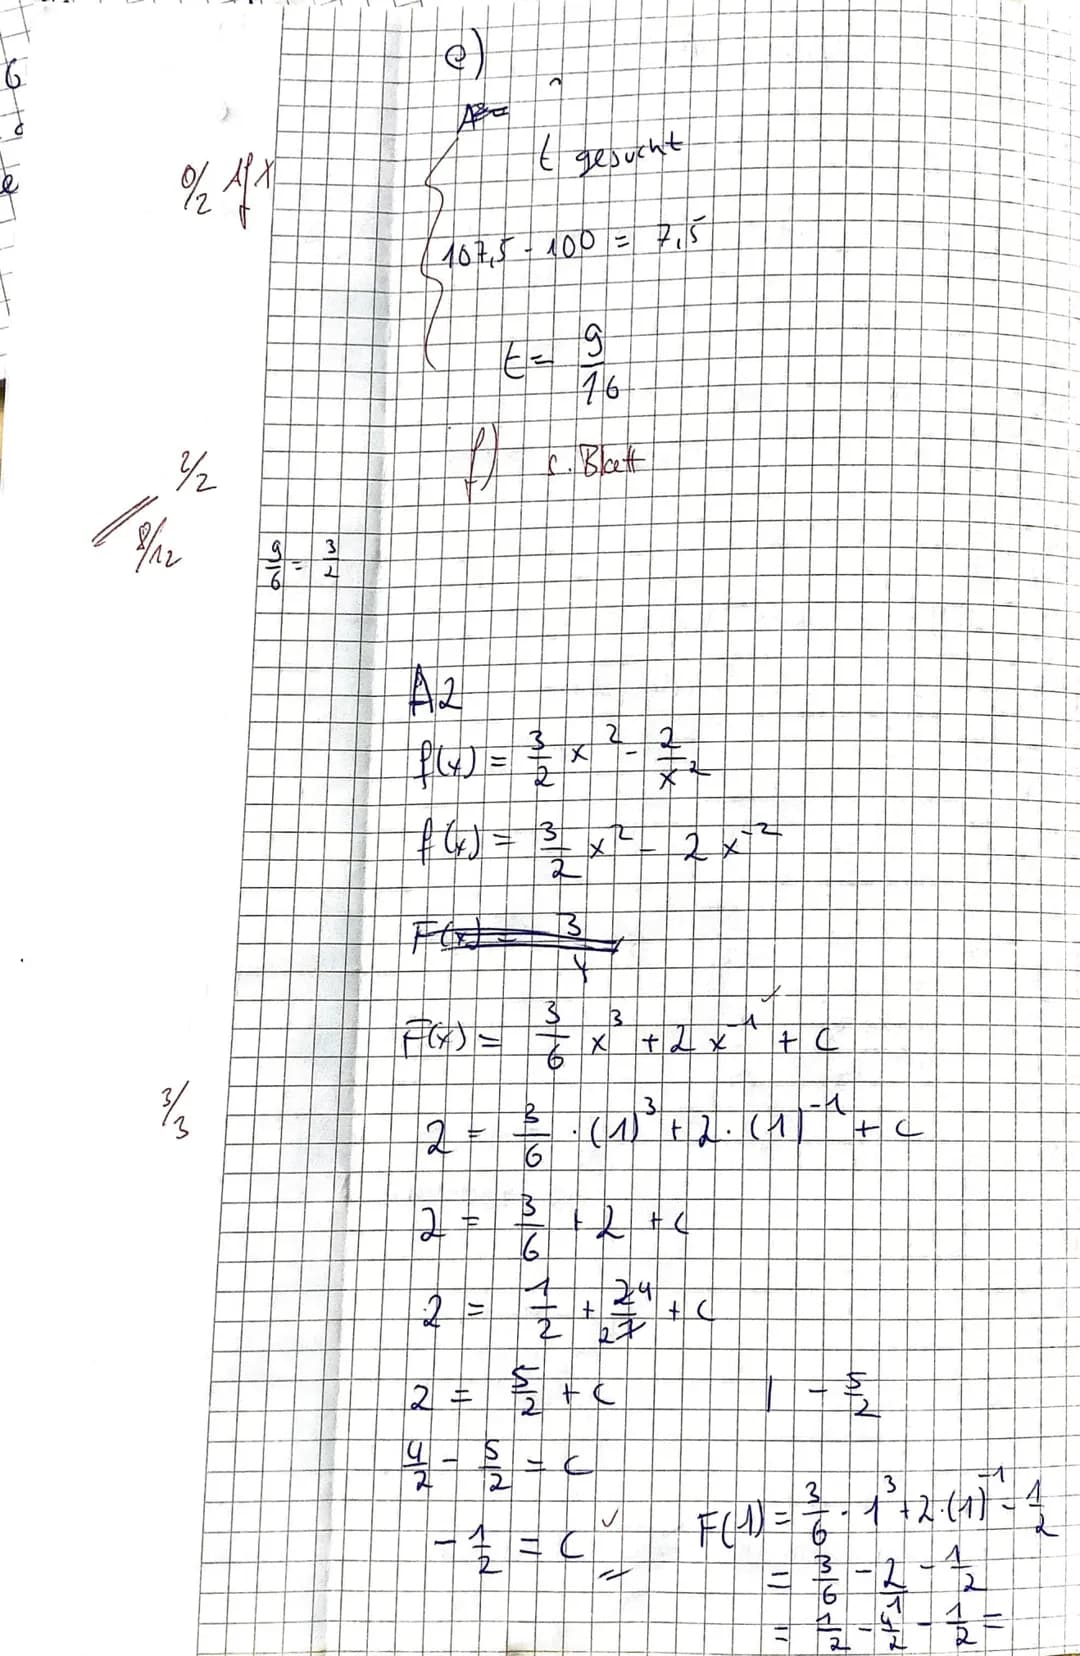 e)
t gesucht
0/2 Af X
107,5 - 100 = 7,5
t = 9/16
f) s. Blatt
2/2
8/12
9/6 = 3/2
A2
f(x) = 3/2 x² - 2/x²
f(x) = 3/2 x² - 2x⁻²
F(x) = 3/4
F(x) = 3/6 x³ + 2x⁻¹ + C ✓
3/3
2 = 3/6 · (1)³ + 2 · (1)⁻¹ + C
2 = 3/6 + 2 + C
2 = 1/2 + 4/2 + C
2 = 5/2 + C | - 5/2
4/2 - 5/2 = C
- 1/2 = C ✓
F(1) = 3/6 · 1³ + 2·(1)⁻¹ - 1/2
= 3/6 - 2/1 - 1/2
= 1/2 - 4/2 - 1/2 =